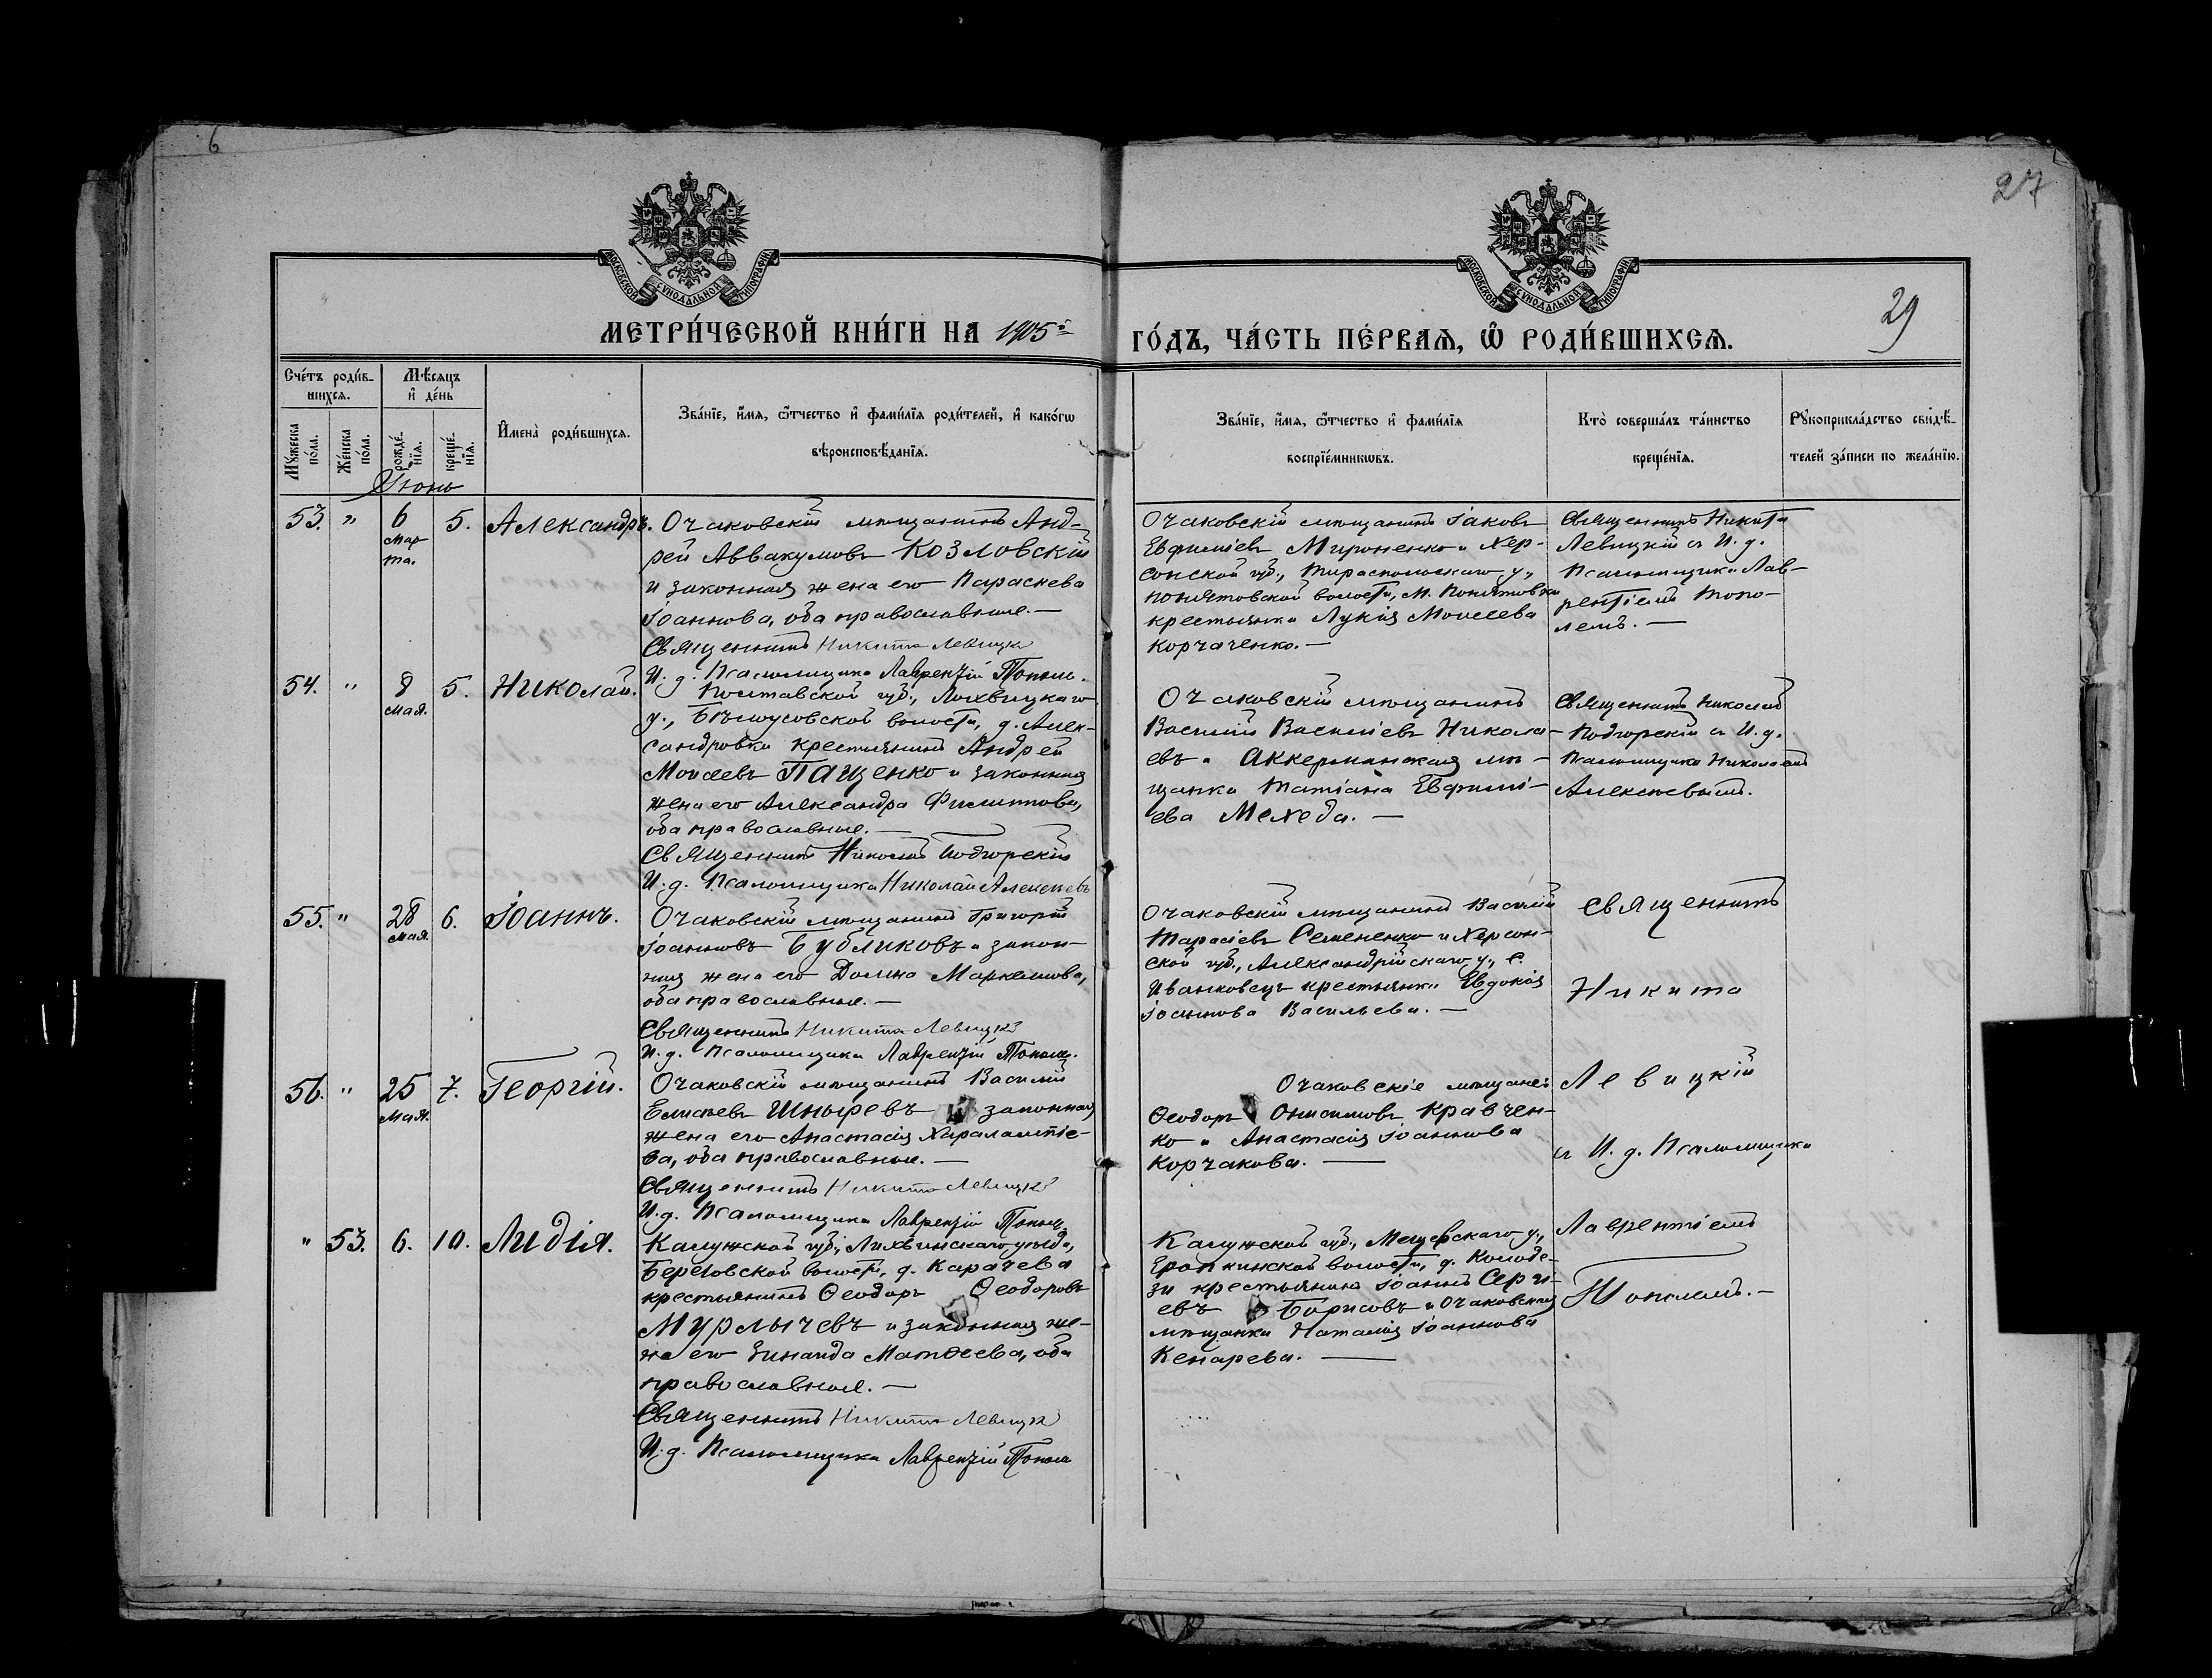 6
27
МОСКОВСКОЙ СУНОДАЛЬНОЙ ТИПОГРАФІИ
МОСКОВСКОЙ СУНОДАЛЬНОЙ ТИПОГРАФІИ
МЕТРИ́ЧЕСКОЙ КНИ́ГИ НА 1905й
ГО́ДЪ, ЧА́СТЬ ПЕ́РВАѦ, Ѡ҆ РОДИ́ВШИХСѦ.
29
Сче́тъ роди́в-
шихсѧ.
Мѣ́сѧцъ
и҆ де́нь
Мꙋ́жеска
по́ла.
Же́нска
по́ла.
рожде́-
нїѧ.
креще́-
нїѧ.
И҆мена̀ роди́вшихсѧ.
Зва́нїе, и҆́мѧ, ѻ҆́тчество и҆ фами́лїѧ роди́телей, и҆ како́гѡ
вѣроисповѣ́данїѧ.
Зва́нїе, и҆́мѧ, ѻ҆́тчество и҆ фами́лїѧ
воспрїе́мникѡвъ.
Кто̀ соверша́лъ та́инство
креще́нїѧ.
Рꙋкоприкла́дство свидѣ́-
телей за́писи по жела́нїю.
Іюнь
53. " 6 Мар-
та.
5. Александръ.
Очаковскій мѣщанинъ Анд-
рей Аввакумовъ Козловскій
и законная жена его Параскева
Іоаннова, оба православные. —
Священникъ Никита Левицкій
И. д. Псаломщика Лаврентій Тополь.
Очаковскій мѣщанинъ Іаковъ
Евфиміевъ Мироненко и Хер-
сонской губ., Тираспольскаго у.,
Понятовской волости, м. Понятовки
крестьянка Лукія Моисеева
Корчаченко. —
Священникъ Никита
Левицкій съ И. д.
Псаломщика Лав-
рентіемъ Топо-
лемъ. —
54. " 8 Мая. 5. Николай.
Полтавской губ., Лохвицкаго
у., Бѣлоусовской волости, д. Алек-
сандровки крестьянинъ Андрей
Моисеевъ Пащенко и законная
жена его Александра Филиппова,
оба православные. —
Священникъ Николай Подгорскій
И. д. Псаломщика Николай Алексѣевъ
Очаковскій мѣщанинъ
Василій Васильевъ Никола-
евъ и Аккерманская мѣ-
щанка Татіана Евфимі-
ева Мехеда. —
Священникъ Николай
Подгорскій съ И. д.
Псаломщика Николаемъ
Алексѣевымъ.
55. " 28 Мая. 6. Іоаннъ.
Очаковскій мѣщанинъ Григорій
Іоанновъ Бубликовъ и закон-
ная жена его Домна Маркелова,
оба православные. —
Священникъ Никита Левицкій
И. д. Псаломщика Лаврентій Тополь.
Очаковскій мѣщанинъ Василій
Тарасіевъ Семененко и Херсон-
ской губ., Александрійскаго у., с.
Ивановецъ крестьянка Евдокія
Іоаннова Васильева. —
Священникъ
Никита
56. " 25 Мая. 7. Георгій.
Очаковскій мѣщанинъ Василій
Елисѣевъ Шныревъ и законная
жена его Анастасія Харалампіе-
ва, оба православные. —
Священникъ Никита Левицкій
И. д. Псаломщика Лаврентій Тополь
Очаковскіе мѣщане:
Ѳеодоръ Онисимовъ Кравчен-
ко и Анастасія Іоаннова
Корчакова. —
Левицкій
съ И. д. Псаломщика
" 53. 6. 10. Лидія.
Калужской губ., Лихвинскаго уѣзда,
Березовской волости, д. Карачева
крестьянинъ Ѳеодоръ Ѳеодоровъ
Мурлычевъ и законная же-
на его Зинаида Матѳеева, оба
православные. —
Священникъ Никита Левицкій
И. д. Псаломщика Лаврентій Тополь
Калужской губ., Мещовскаго у.,
Еропкинской волости, д. Колоде-
зи крестьянинъ Іоаннъ Серге-
евъ Борисовъ и Очаковская
мѣщанка Наталія Іоаннова
Кенарева. —
Лаврентіемъ
Тополемъ. —